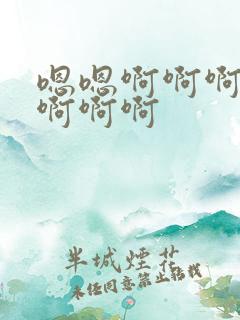 嗯嗯啊啊啊
啊啊啊
半城煙花
未经同意禁止转载